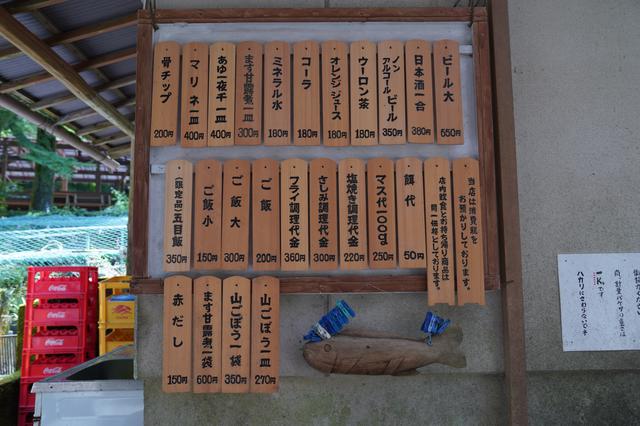 ビール大 550円
日本酒一合 380円
ノンアルコールビール 350円
ウーロン茶 180円
オレンジジュース 180円
コーラ 180円
ミネラル水 180円
ます甘露煮一皿 300円
あゆ一夜干一皿 400円
マリネ一皿 400円
骨チップ 200円
当店は消費税を
お預かりしております。
店内飲食とお持ち帰り商品は
同一価格としております。
餌代 50円
マス代100g 250円
塩焼き調理代金 220円
さしみ調理代金 300円
フライ調理代金 360円
ご飯 200円
ご飯大 300円
ご飯小 150円
(限定品)五目飯 350円
山ごぼう一皿 270円
山ごぼう一袋 350円
ます甘露煮一袋 600円
赤だし 150円
Coca-Cola
Coca-Cola
Coca-Cola
Coca-Cola